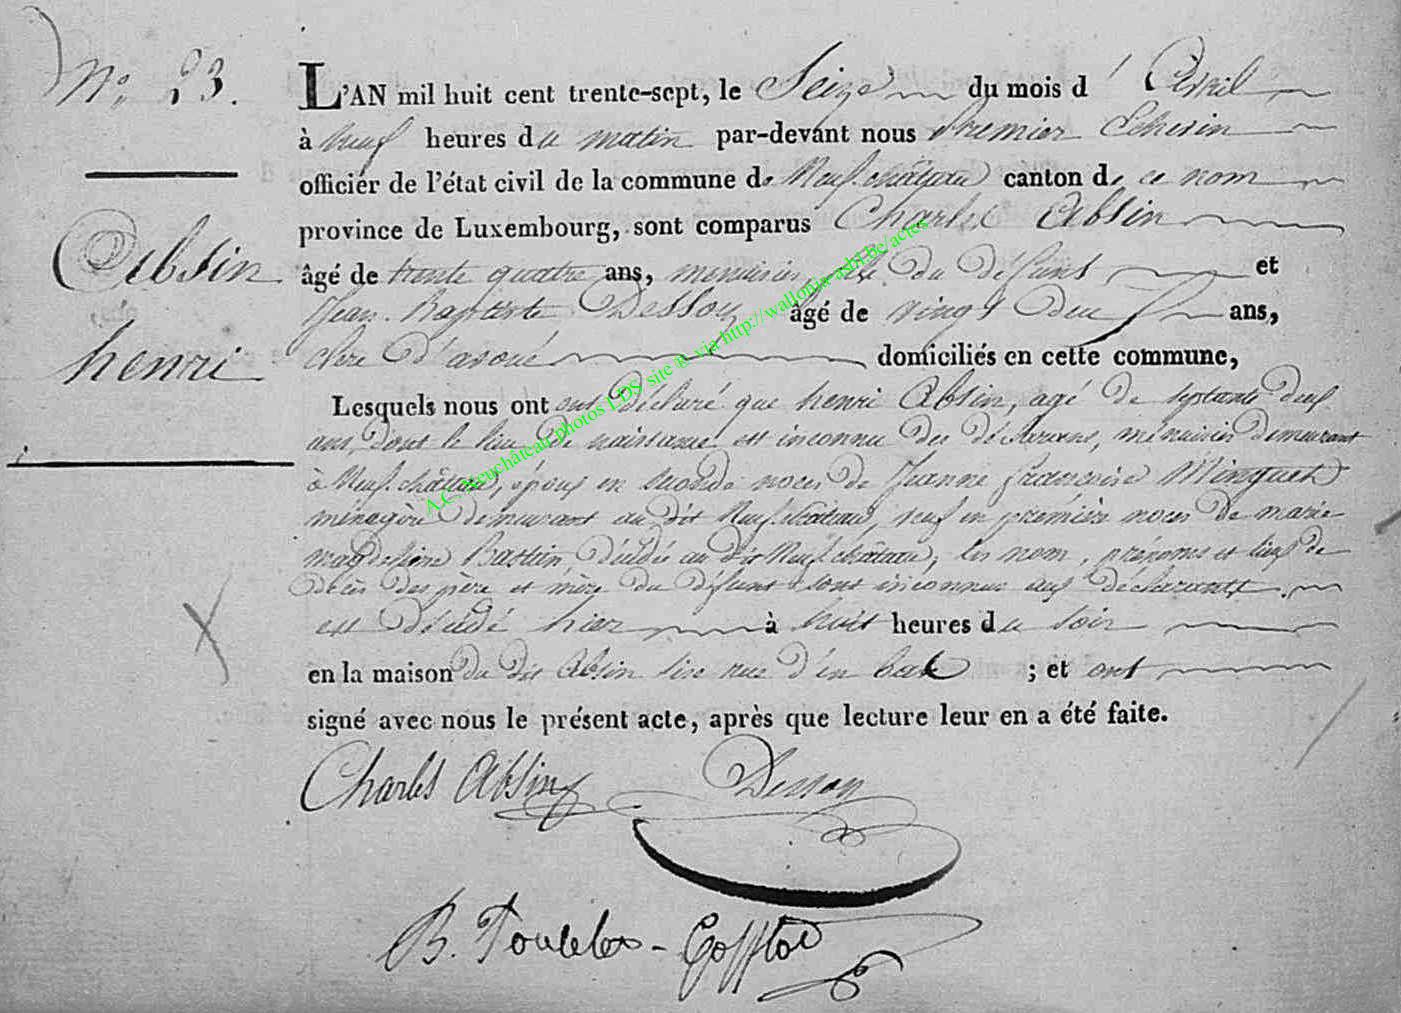 N° 23.
L'AN mil huit cent trente-sept, le Seize du mois d'Avril
à neuf heures du matin par-devant nous Premier Echevin
officier de l'état civil de la commune de Neufchâteau canton de ce nom
province de Luxembourg, sont comparus Charles Absin
Absin
henri
âgé de trente quatre ans, menuisier, fils du défunt et
Jean Baptiste Dessoy âgé de vingt deux ans,
clerc d'avoué domiciliés en cette commune,
Lesquels nous ont ont déclaré que henri Absin, agé de septante deux
ans, dont le lieu de naissance est inconnu des déclarans, menuisier demeurant
à Neufchâteau, époux en seconde noces de Jeanne françoise Minguet
ménagère demeurant au dit Neufchâteau, veuf en premières noces de marie
magdeleine Bastin décédée au dit Neufchâteau, les nom, prénoms et lieux de
décès des père et mère du défunt sont inconnus aux déclarants.
est décédé hier à huit heures du soir
en la maison du dit Absin sise rue d'en bas ; et ont
signé avec nous le présent acte, après que lecture leur en a été faite.
Charles Absin Dessoy
B.
A.C. Neuchâteau photos LDS/ site ® via http://wallonia-asbl.be/actes